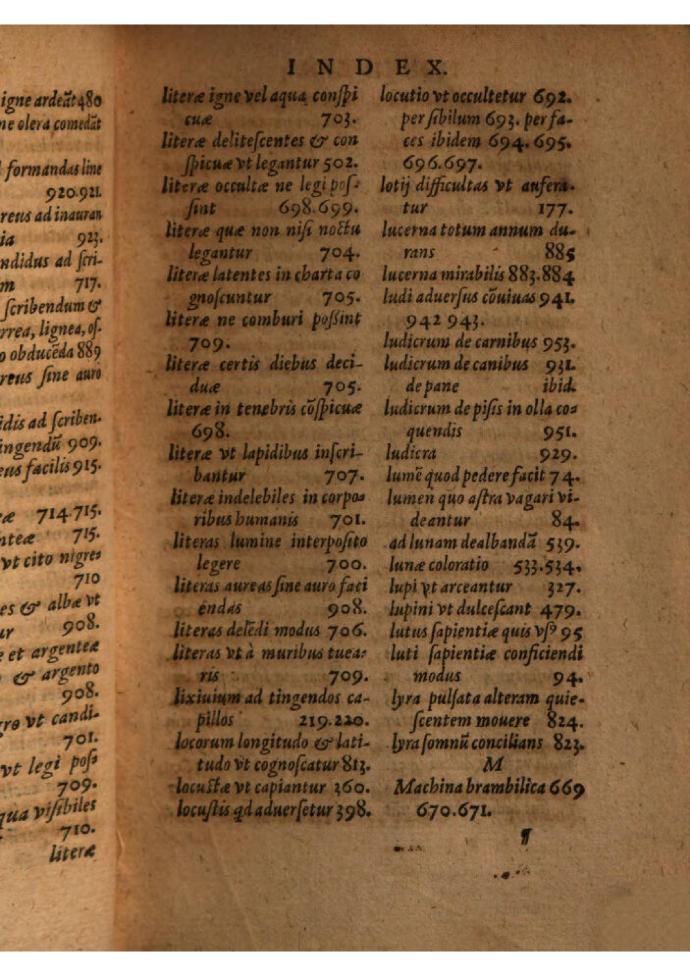 igne ardeãt 480
ne olera comedãt
formandas line
920.921.
reus ad inauran
ia 923.
ndidus ad ſcri-
m 717.
ſcribendum &
rrea, lignea, oſ-
o obducẽda 889
reus ſine auro
idis ad ſcriben-
ingendũ 909.
eus facilis 915.
æ 714.715.
nteæ 715.
vt cito nigreſ
710
es & albæ vt
ur 908.
e et argenteæ
& argento
908.
gro vt candi-
701.
vt legi poſſ
709.
qua viſibiles
710.
literæ
INDEX.
literæ igne vel aqua conſpi
cuæ 703.
literæ deliteſcentes & con
ſpicuæ vt legantur 502.
literæ occultæ ne legi poſ-
ſint 698.699.
literæ quæ non niſi noctu
legantur 704.
literæ latentes in charta co
gnoſcuntur 705.
literæ ne comburi poßint
709.
literæ certis diebus deci-
duæ 705.
literæ in tenebris cõſpicuæ
698.
literæ vt lapidibus inſcri-
bantur 707.
literæ indelebiles in corpo-
ribus humanis 701.
literas lumine interpoſito
legere 700.
literas aureas ſine auro faci
endas 908.
literas delẽdi modus 706.
literas vt à muribus tuea-
ris 709.
lixiuium ad tingendos ca-
pillos 219.220.
locorum longitudo & lati-
tudo vt cognoſcatur 813.
locuſtæ vt capiantur 360.
locuſtis qd aduerſetur 398.
locutio vt occultetur 692.
per ſibilum 693. per fa-
ces ibidem 694.695.
696.697.
lotij difficultas vt aufera-
tur 177.
lucerna totum annum du-
rans 885
lucerna mirabilis 883.884
ludi aduerſus cõuiuas 941.
942 943.
ludicrum de carnibus 953.
ludicrum de canibus 931.
de pane ibid.
ludicrum de piſis in olla co-
quendis 951.
ludicra 929.
lumẽ quod pedere facit 74.
lumen quo aſtra vagari vi-
deantur 84.
ad lunam dealbandã 539.
lunæ coloratio 533.534.
lupi vt arceantur 327.
lupini vt dulceſcant 479.
lutus ſapientiæ quis vſꝰ 95
luti ſapientiæ conficiendi
modus 94.
lyra pulſata alteram quie-
ſcentem mouere 824.
lyra ſomnũ concilians 823.
M
Machina brambilica 669
670.671.
¶